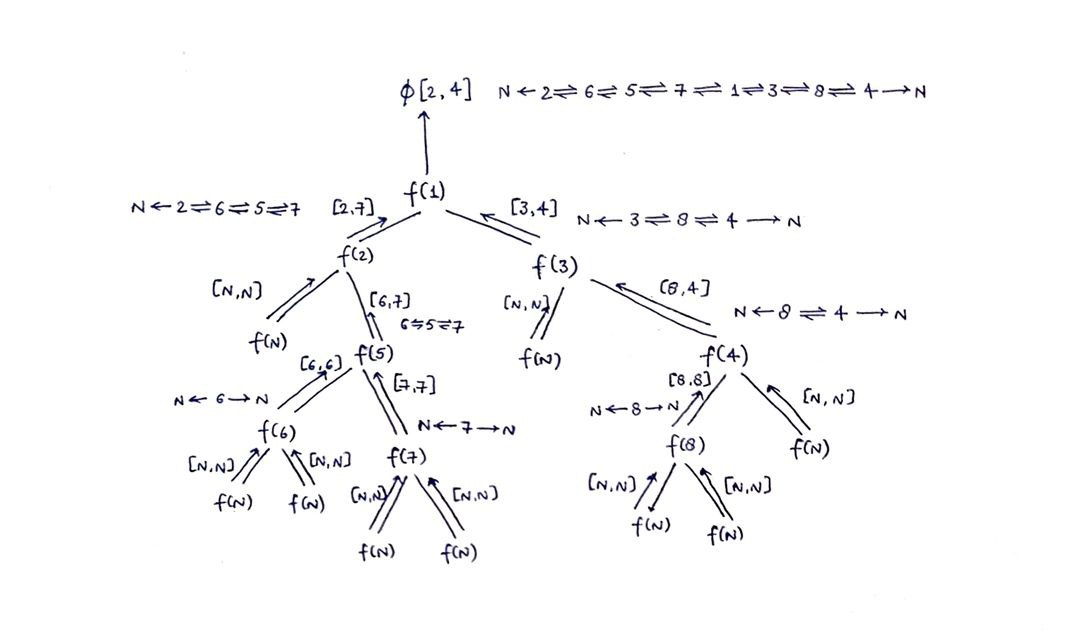 ϕ[2,4] N ← 2 ⇌ 6 ⇌ 5 ⇌ 7 ⇌ 1 ⇌ 3 ⇌ 8 ⇌ 4 → N
f(1)
N ← 2 ⇌ 6 ⇌ 5 ⇌ 7 [2,7] [3,4] N ← 3 ⇌ 8 ⇌ 4 → N
f(2) f(3)
[N,N] [6,7] [N,N] [8,4]
6 ⇋ 5 ⇌ 7 N ← 8 ⇌ 4 → N
f(N) f(5) f(N) f(4)
[6,6] [7,7] [8,8] [N,N]
N ← 6 → N N ← 7 → N N ← 8 → N
f(6) f(7) f(8) f(N)
[N,N] [N,N] [N,N] [N,N] [N,N] [N,N]
f(N) f(N) f(N) f(N)
f(N) f(N)